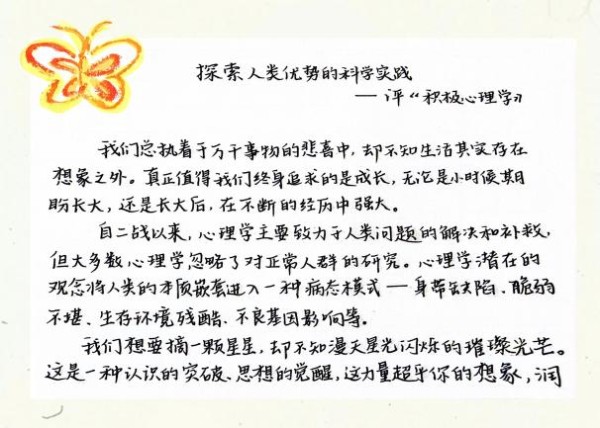 探索人类优势的科学实践
——评《积极心理学》
我们总执着于万千事物的悲喜中,却不知生活其实存在
想象之外。真正值得我们终身追求的是成长,无论是小时候期
盼长大,还是长大后,在不断的经历中强大。
自二战以来,心理学主要致力于人类问题的解决和补救,
但大多数心理学忽略了对正常人群的研究。心理学潜在的
观念将人类的本质嵌套进入一种病态模式——身带缺陷、脆弱
不堪、生存环境残酷、不良基因影响等。
我们想要摘一颗星星,却不知漫天星光闪烁的璀璨光芒。
这是一种认识的突破、思想的觉醒,这力量超乎你的想象,润